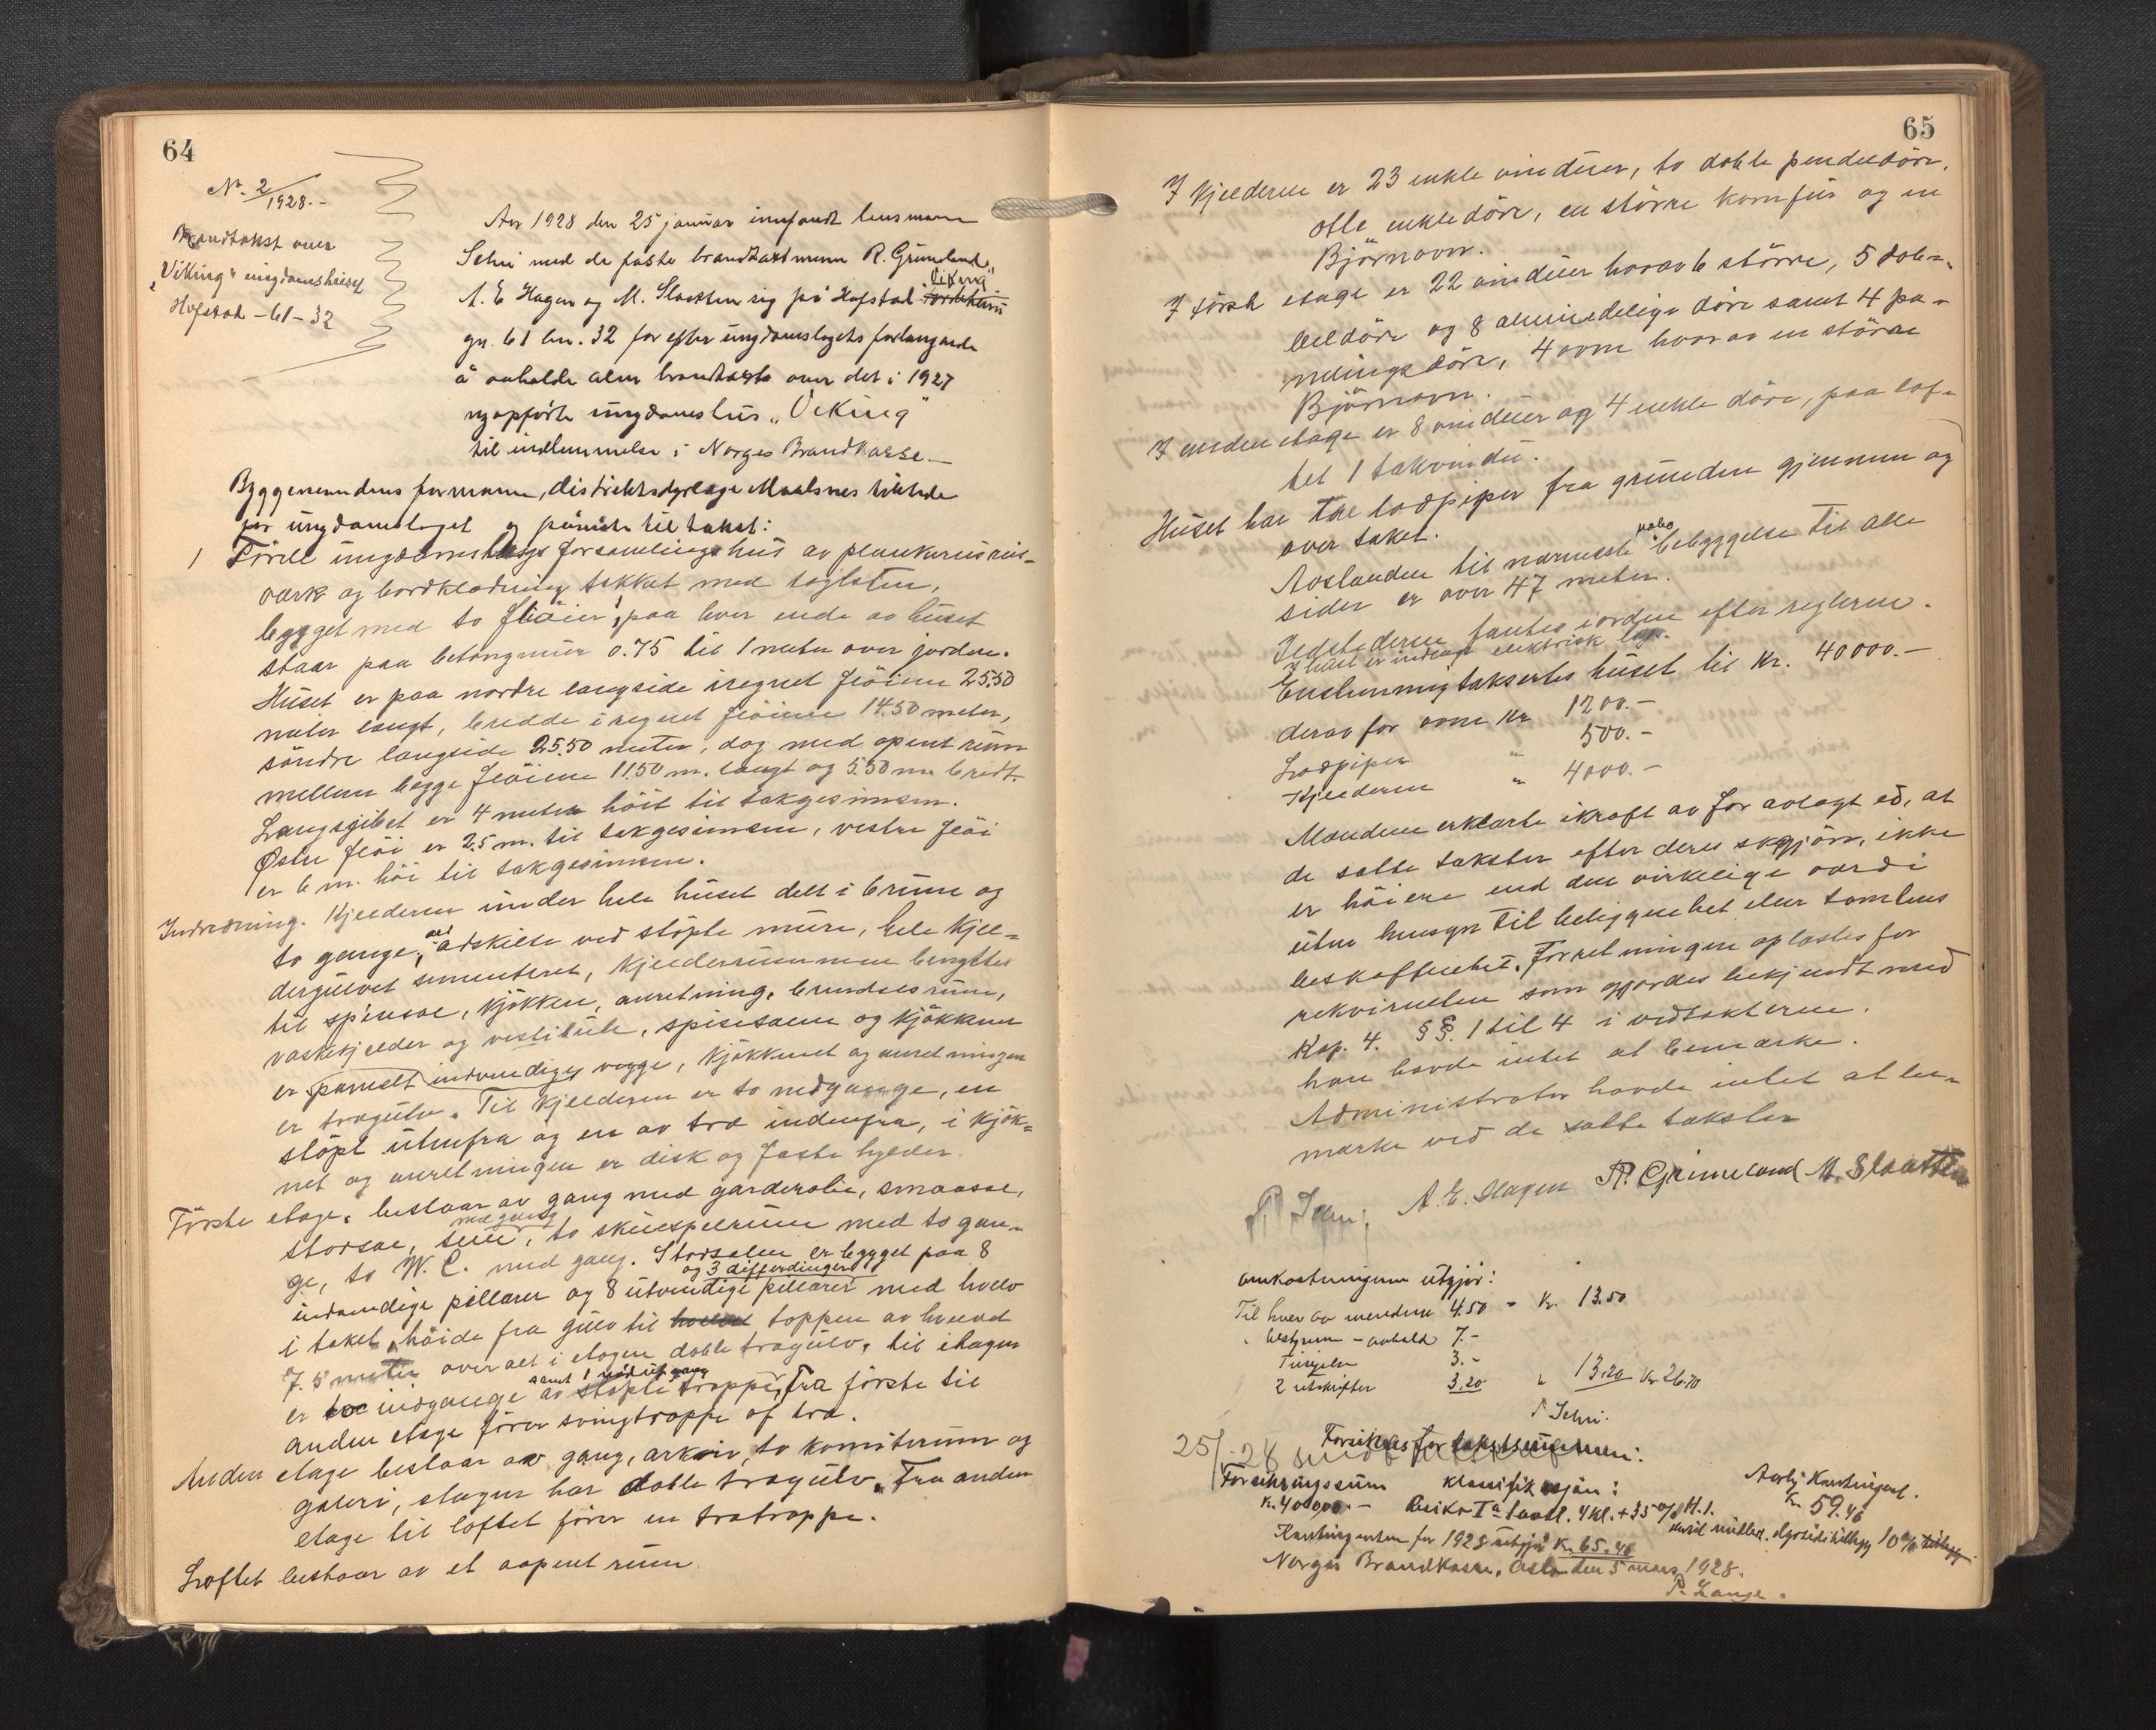 64
Nr. 2/1928.-
Brandtakst over
"Viking" ungdomshuset
Hofstad - 61 - 32
Aar 1928 den 25 januar innfandt lensmann
Sehri med de faste brandtaxtmenn R. Grimelund,
A. E. Hagen og M. Slaatten sig på Hofstad "Viking"
gn. 61 bn. 32 for efter ungdomslagets forlangende
å avholde alm brandtakst over det i 1927
nyopførte ungdomshus „Viking"
til indlemmelse i Norges Brandkasse.-
Byggenemndens formann, distriktsdyrlæge Maalsnes tilstede
for ungdomslaget og påviste til takst:
1 Förele ungdomslags forsamlingshus av plankeuisreis-
værk og bordklædning takket med taglsten,
bygget med to flöier, paa hver ende av huset
staar paa betongmur 0.75 til 1 meter over jorden.
Huset er paa nordre langside iregnet flöiene 25.50
meter langt, bredde iregnet flöiene 14.50 meter,
söndre langside 25.50 meter, dog med apent rum
mellem begge flöiene 11.50 m. langt og 5.50 m. bredt.
Langsgibet er 4 meter höit til takgesimsen.
Østre flöi er 2.5 m. til takgesimsen, vestre flöi
er 6 m. höi til takgesimsen.
Indredning. Kjelderen under hele huset delt i 6 rum og
to gange, alt adskilte ved stöpte mure, hele kjel-
dergulvet sementeret, kjelderrummene benyttes
til spisesal, kjökken, anretning, brendselsrum,
vaskekjelder og vestibule, spisesalen og kjökkenet
er panelt indvendige vegge, kjökkenet og anretningen
er trægulv. Til kjelderen er to nedgange, en
stöpt utenfra og en av træ indenfra, i kjök-
net og anretningen er disk og faste hylder.
Förste etage, bestaar av gang med garderobe, smaasal,
storsal, sene med gang, to skuespelrum med to gan-
ge, to W. C. med gang. Storsalen er bygget paa 8
indvendige pillarer og 8 utvendige pillarer og 3 differdinger med hvelv
i taket, höide fra gulv til toppen av hvelvet
7.5 meter over alt i etagen doble trægulv, til etagen
er to indgange av stöpte trapper, samt 1 nödutgang Fra förste til
anden etage förer svingtrappe af træ.
Anden etage bestaar av gang, arkiv, to komiterum og
galeri, etagen har doble trægulv. Fra anden
etage til loftet förer en trætrappe.
Loftet bestaar av et aapent rum.
65
I kjelderen er 23 enkle vinduer, to doble pendeldöre,
otte enkle döre, en större komfur og en
Björnovn.
I förste etage er 22 vinduer hvorav 6 större, 5 dob-
beldöre og 8 almindelige döre samt 4 pa-
nelingsdöre, 4 ovne hvorav en större
Björnovn.
I anden etage er 8 vinduer og 4 enkle döre, paa lof-
tet 1 takvindu.
Huset har tre lodpiper fra grunden gjennem og
over taket.
Avstanden til nærmeste nabo bebyggelse til alle
sider er over 47 meter.
Ildstederne fantes iorden efter reglerne.
I huset er indlagt elektrisk lys.
Enstemmig taksertes huset til Kr. 40000.-
derav for ovne Kr 1200.-
Lodpiper " 500.-
Kjelderen " 4000.-
Mændene erklærte ikraft av för avlagt ed, at
de satte takster efter deres skjjön, ikke
er höiere end den virkelige værdi
uten hensyn til beliggenhet eller tomtens
beskaffenhet. Forretningen oplæstes for
rekvirenten som gjordes bekjendt med
Kap. 4. §§. 1 til 4 i vedtækterne.
han havde intet at bemærke.
Administrator havde intet at be-
mærke ved de satte takster
P. Sehri, A. E. Hagen R. Grimelund M. Slaatten
Omkostningene utgjör:
Til hver av mendene 4.50 = Kr. 13.50
" bestyreren - avhold 7.-
Tinglysn 3.-
2 utskrifter 3.20 " 13.20 Kr. 26.70
P Sehri.
25/1-28 sendt
Forsikres for takstsummen:
Forsikringssum klassifikasjon: Aarlig Kontingent.
Kr. 40000.- Risiko Ia landl. 4 kl. + 35% H.1. Kr. 59.46
Kontingenten for 1928 utgjör Kr. 65.40
Norges Brandkasse, Oslo den 5 mars 1928.
P. Lange.